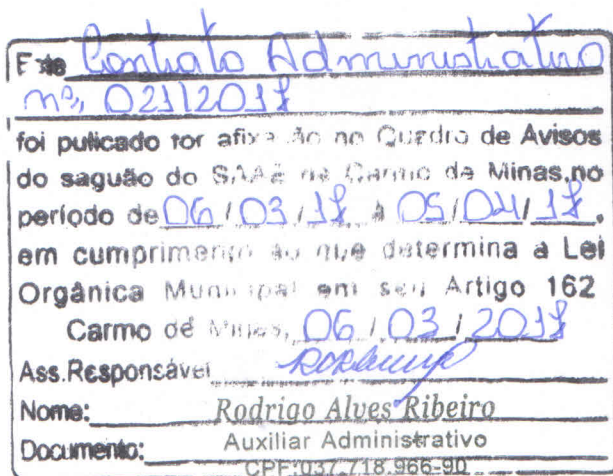 Este Contrato Administrativo
nº, 021/2017
foi publicado por afixação no Quadro de Avisos
do saguão do SAAE de Carmo de Minas, no
período de 06/03/17 à 05/04/17,
em cumprimento ao que determina a Lei
Orgânica Municipal em seu Artigo 162
Carmo de Minas, 06/03/2017
Ass.Responsável
Nome: Rodrigo Alves Ribeiro
Documento: Auxiliar Administrativo
CPF:037.718.966-90